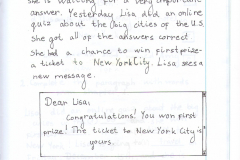 she is waiting for a very important
answer. Yesterday Lisa did an online
quiz about the big cities of the U.S.
She got all of the answers correct
She had a chance to win first prize-
a ticket to New York City. Lisa sees a
new message.
Dear Lisa,
Congratulations! You won first
prize! The ticket to New York City is
yours.